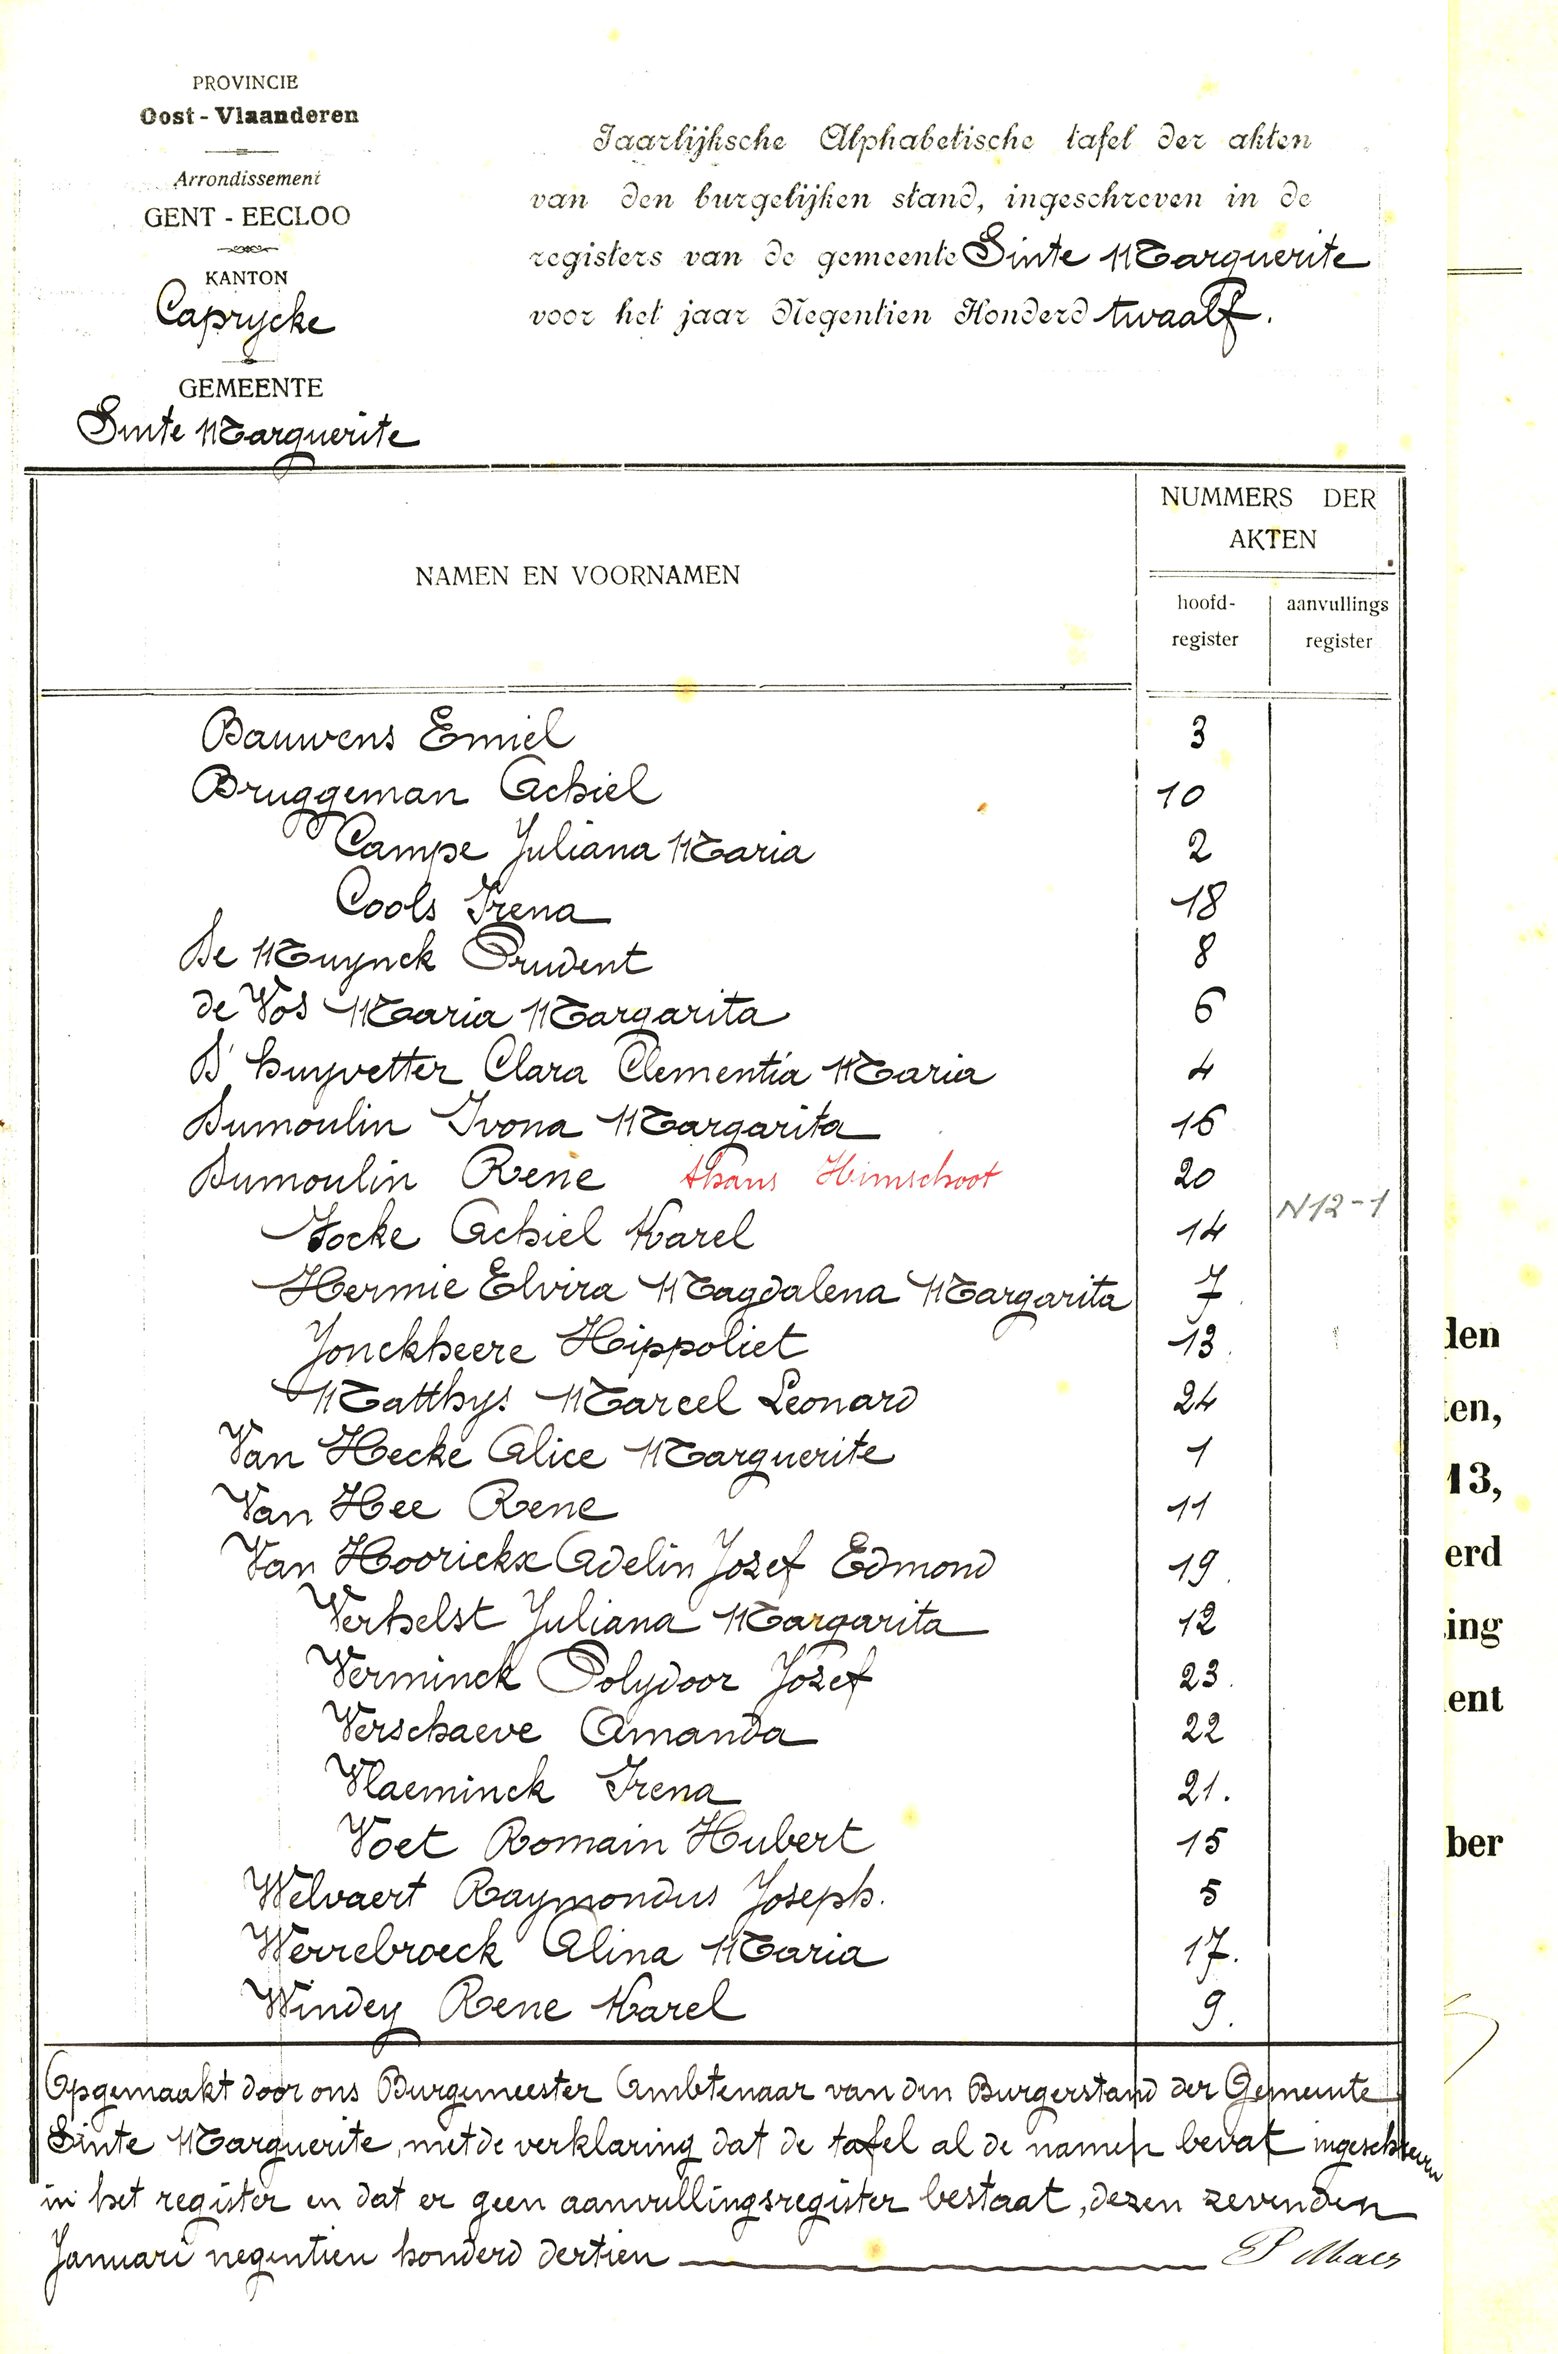 PROVINCIE
Oost - Vlaanderen
Arrondissement
GENT - EECLOO
KANTON
Caprycke
GEMEENTE
Sinte Marguerite
Jaarlijksche Alphabetische tafel der akten
van den burgelijken stand, ingeschreven in de
registers van de gemeente Sinte Marguerite
voor het jaar Negentien Honderd twaalf.
NAMEN EN VOORNAMEN
NUMMERS DER
AKTEN
hoofd-
register
aanvullings
register
Bauwens Emiel 3
Bruggeman Achiel 10
Campe Juliana Maria 2
Cools Irena 18
De Muynck Prudent 8
de Vos Maria Margarita 6
D'huyvetter Clara Clementia Maria 4
Dumoulin Ivona Margarita 16
Dumoulin Rene thans Himschoot 20
N12-1
Jocke Achiel Karel 14
Hermie Elvira Magdalena Margarita 7
Jonckheere Hippoliet 13.
Matthys Marcel Leonard 24
Van Hecke Alice Marguerite 1
Van Hee Rene 11
Van Hoorickx Adelin Jozef Edmond 19.
Verhelst Juliana Margarita 12
Verminck Polydoor Jozef 23.
Verschaeve Amanda 22
Vlaeminck Irena 21.
Voet Romain Hubert 15
Welvaert Raymondus Joseph. 5
Werrebroeck Alina Maria 17.
Windey Rene Karel 9.
Opgemaakt door ons Burgemeester Ambtenaar van den Burgerstand der Gemeente
Sinte Marguerite, met de verklaring dat de tafel al de namen bevat ingeschreven
in het register en dat er geen aanvullingsregister bestaat, dezen zevenden
Januari negentien honderd dertien P Maes
den
ten,
13,
erd
ing
ent
ber